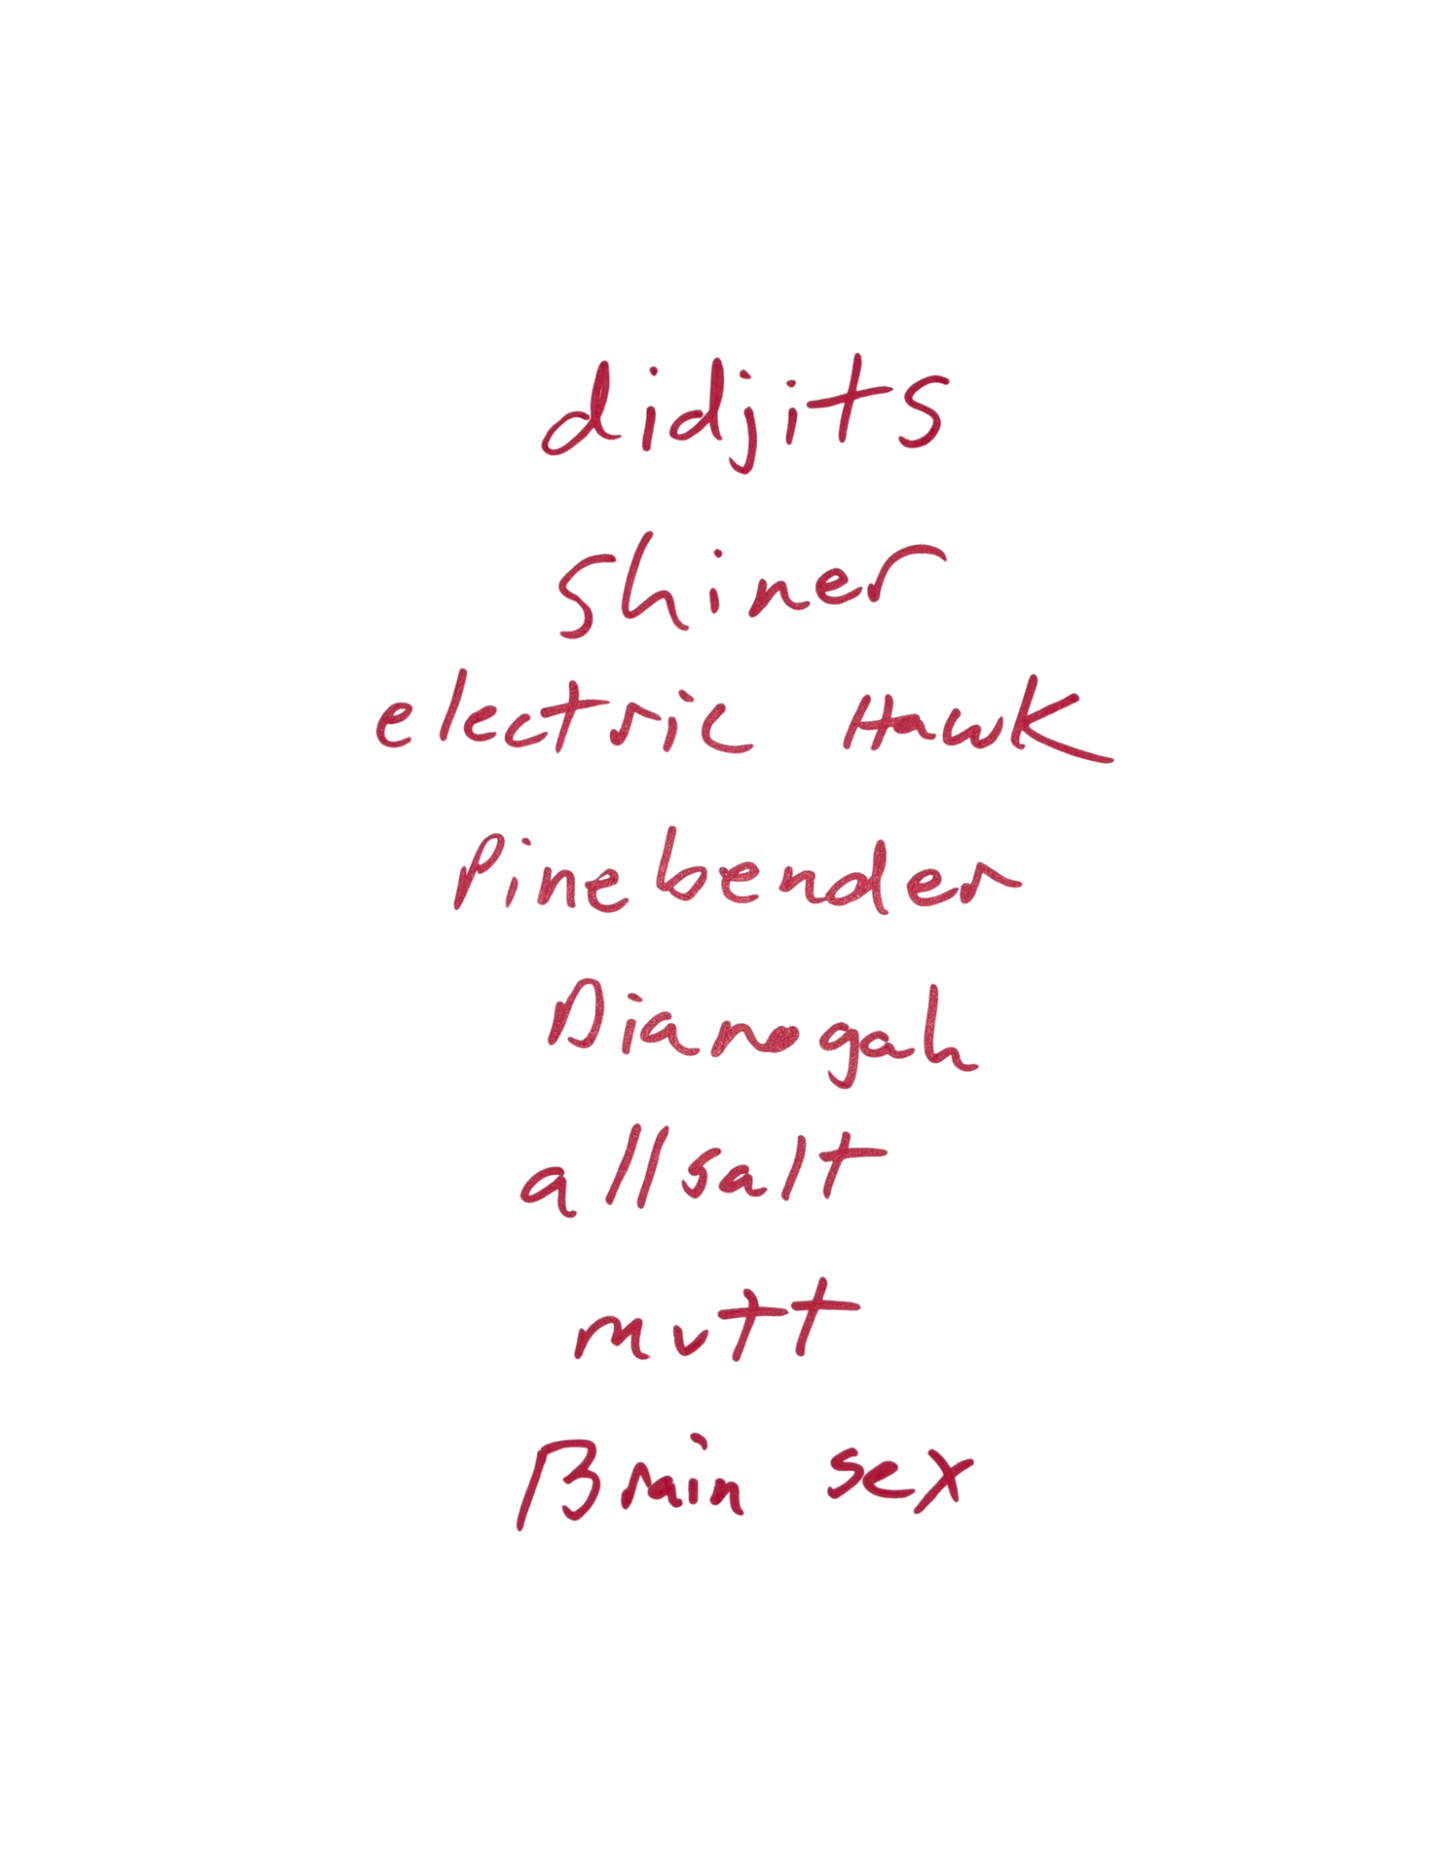 didjits
shiner
electric Hawk
Pinebender
Dianogah
allsalt
mutt
Brain sex